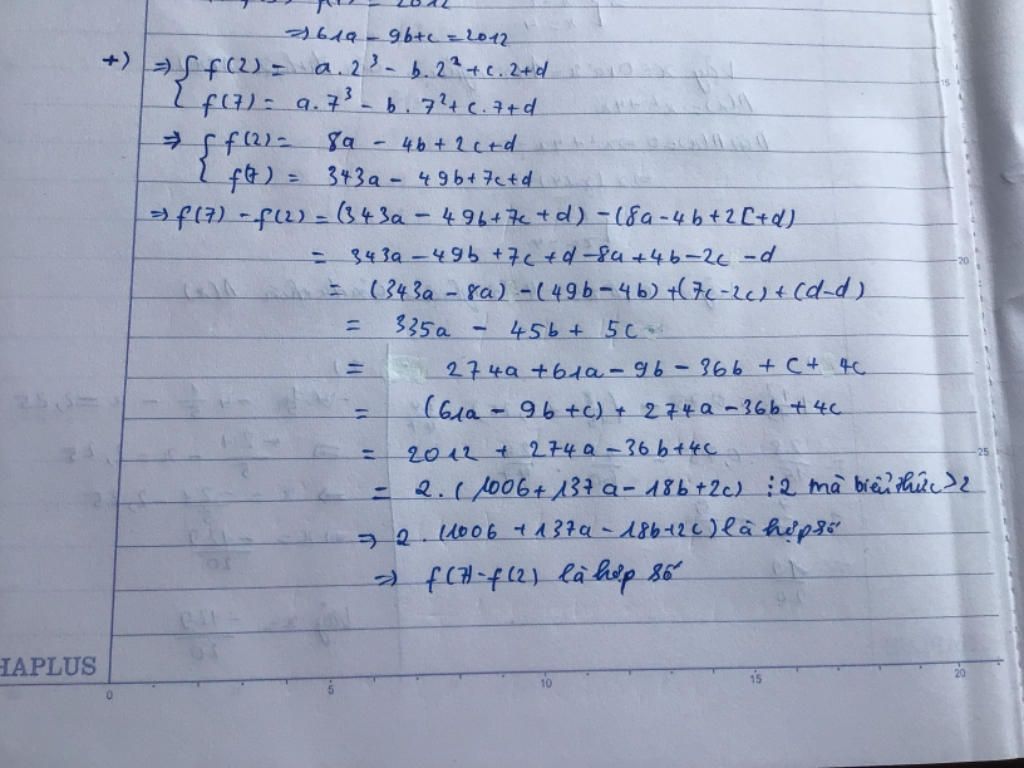 = 2012
⇒ 61a − 9b+c = 2012
+) ⇒ { f(2) = a.2³ − b.2² + c.2+d
f(7) = a.7³ − b.7² + c.7+d
⇒ { f(2) = 8a − 4b + 2c+d
f(7) = 343a − 49b+7c+d
⇒ f(7) − f(2) = (343a − 49b+7c + d) − (8a−4b+2c+d)
= 343a − 49b + 7c + d −8a+4b−2c −d
= (343a − 8a) − (49b−4b) + (7c−2c) + (d−d)
= 335a − 45b + 5c
= 274a + 61a − 9b − 36b + c + 4c
= (61a − 9b + c) + 274a − 36b + 4c
= 2012 + 274a − 36b+4c
= 2. (1006+137a − 18b+2c) ⋮2 mà biểu thức >2
⇒ 2. (1006 + 137a − 18b+2c) là hợp số
⇒ f(7)−f(2) là hợp số
HAPLUS
15
20
25
0 5 10 15 20